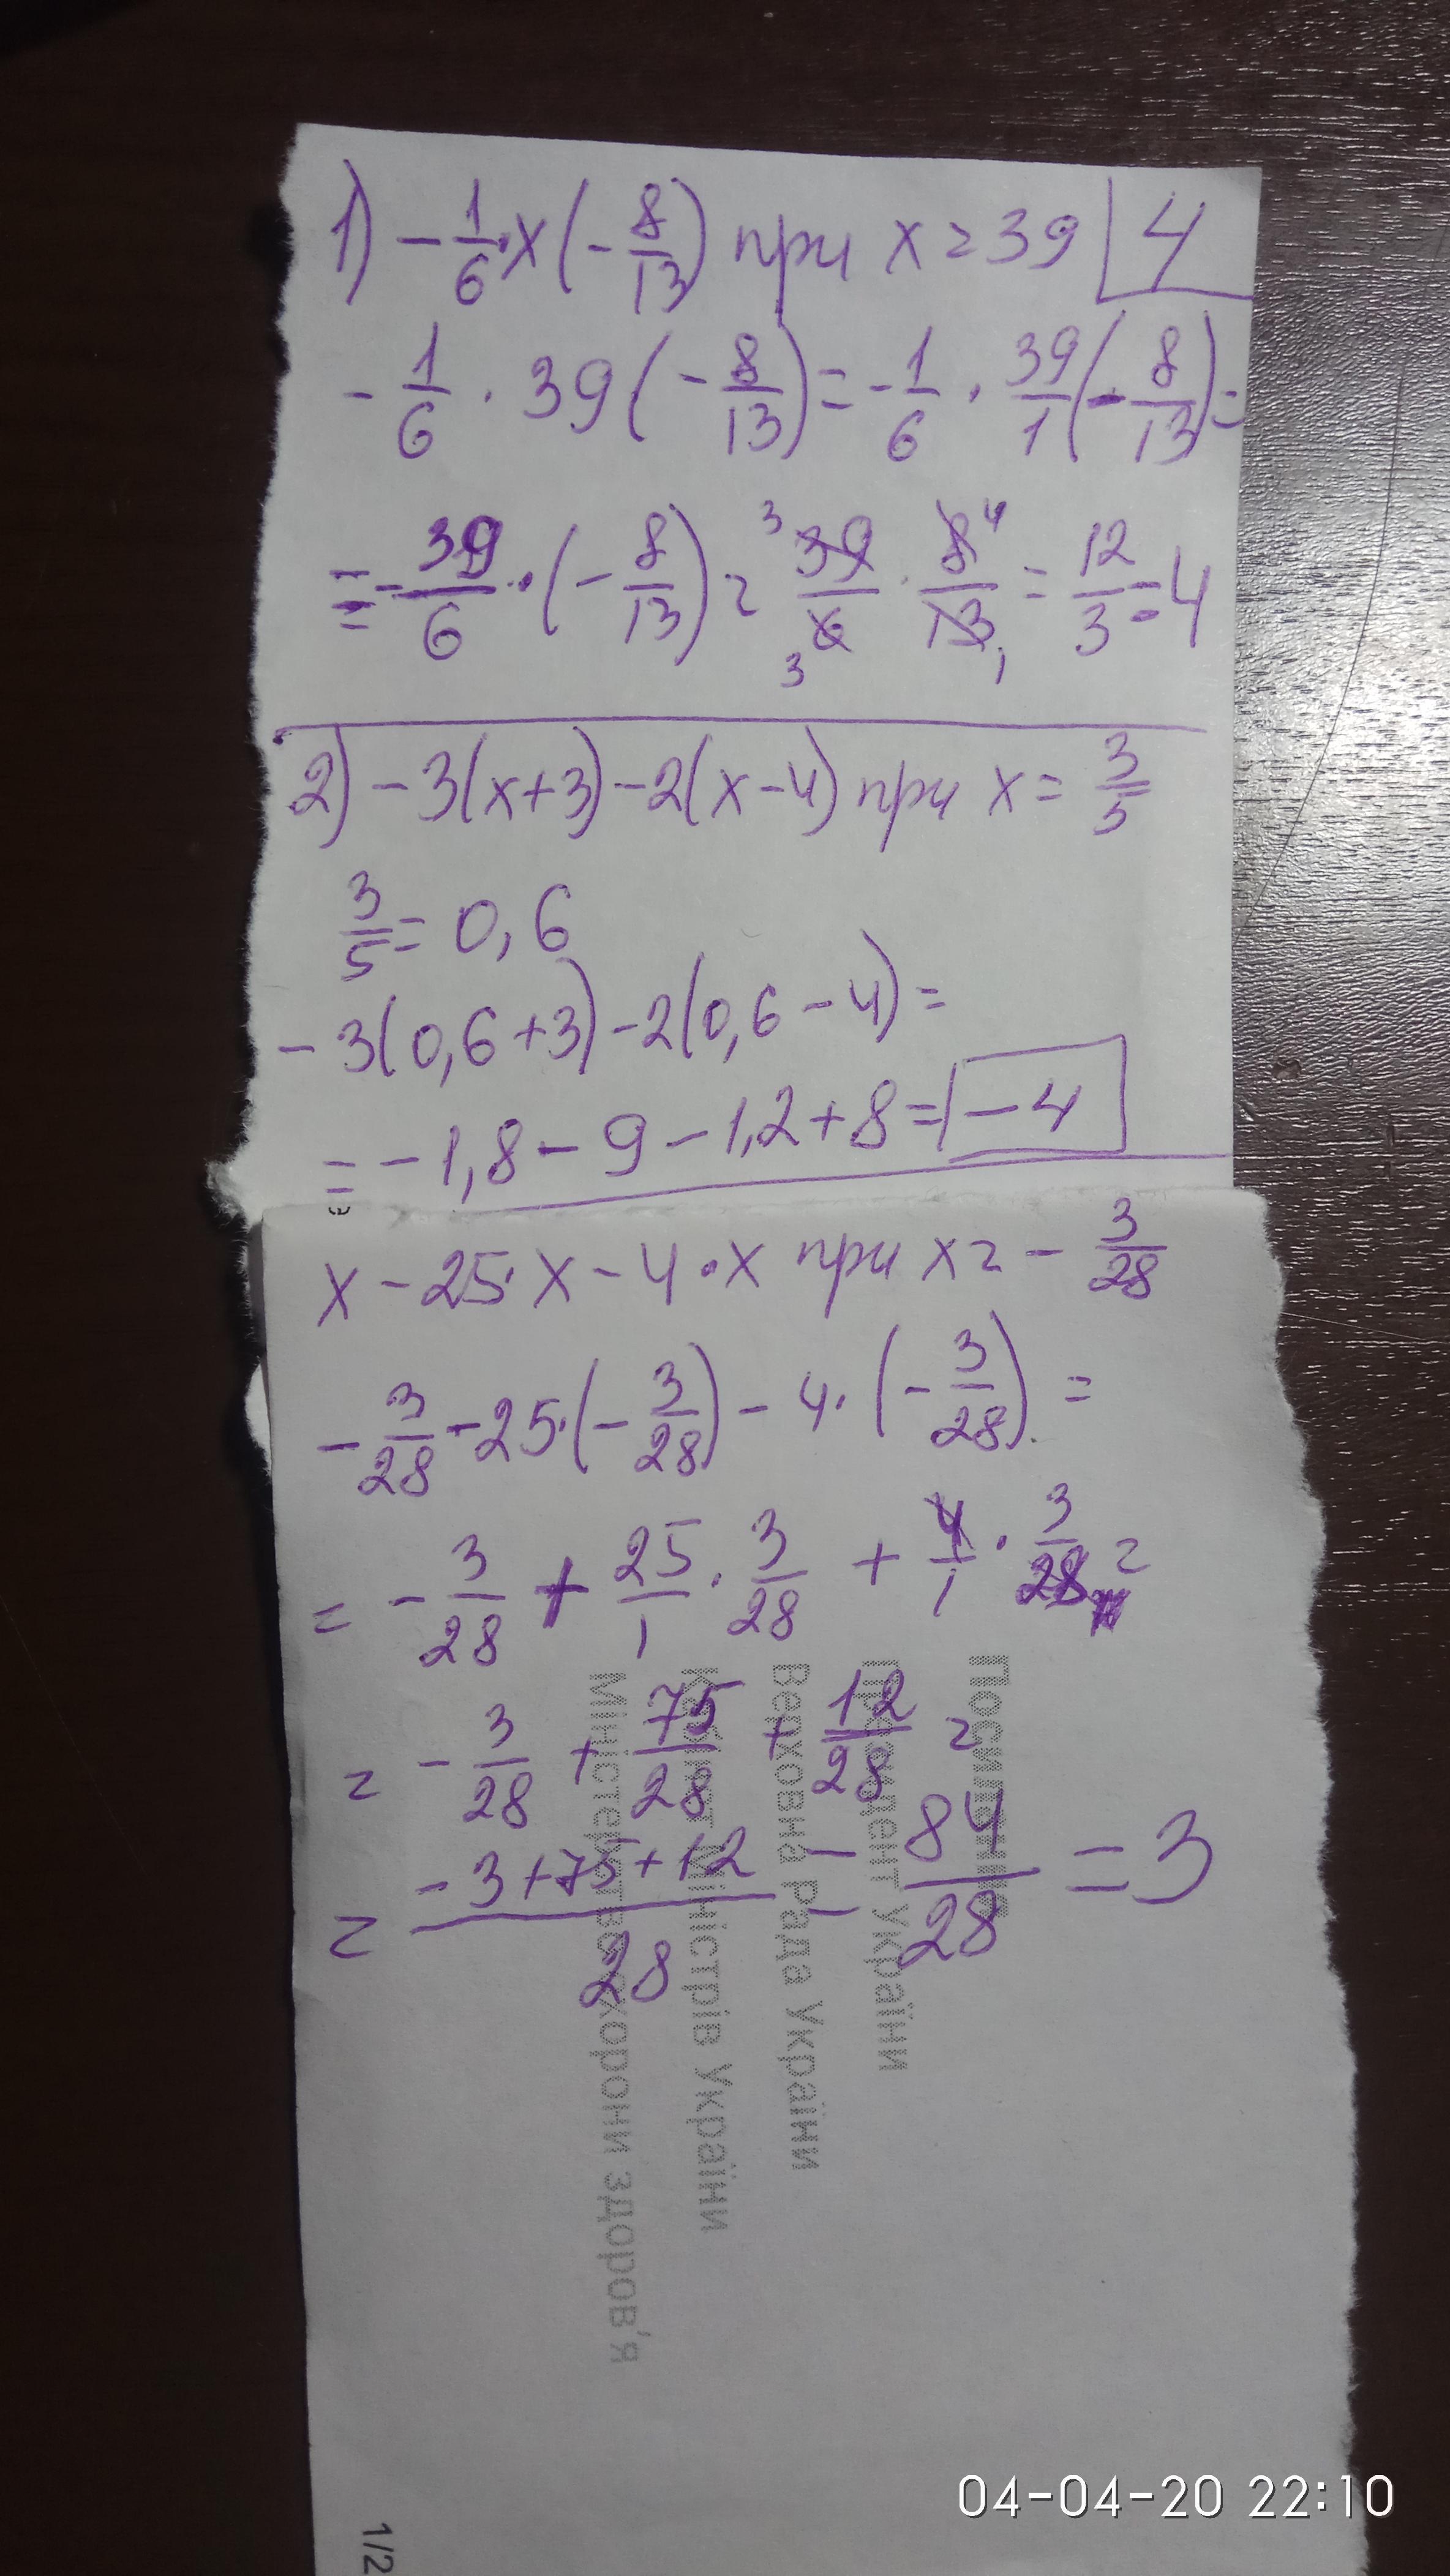 1) - 1/6 · x (- 8/13) при x = 39 | 4
- 1/6 · 39 (- 8/13) = - 1/6 · 39/1 (- 8/13) =
= - 39/6 · (- 8/13) = 3 39/6 3 · 8 4/13 1 = 12/3 = 4
2) - 3(x+3) - 2(x-4) при x = 3/5
3/5 = 0,6
- 3(0,6+3) - 2(0,6-4) =
= - 1,8 - 9 - 1,2 + 8 = - 4
x - 25 · x - 4 · x при x = - 3/28
- 3/28 - 25 · (- 3/28) - 4 · (- 3/28) =
= - 3/28 + 25/1 · 3/28 + 4/1 · 3/28 =
= - 3/28 + 75/28 + 12/28 =
= (-3+75+12)/28 = 84/28 = 3
Посилання
Президент України
Верховна Рада України
Кабінет Міністрів України
Міністерство охорони здоров'я
1/2
04-04-20 22:10